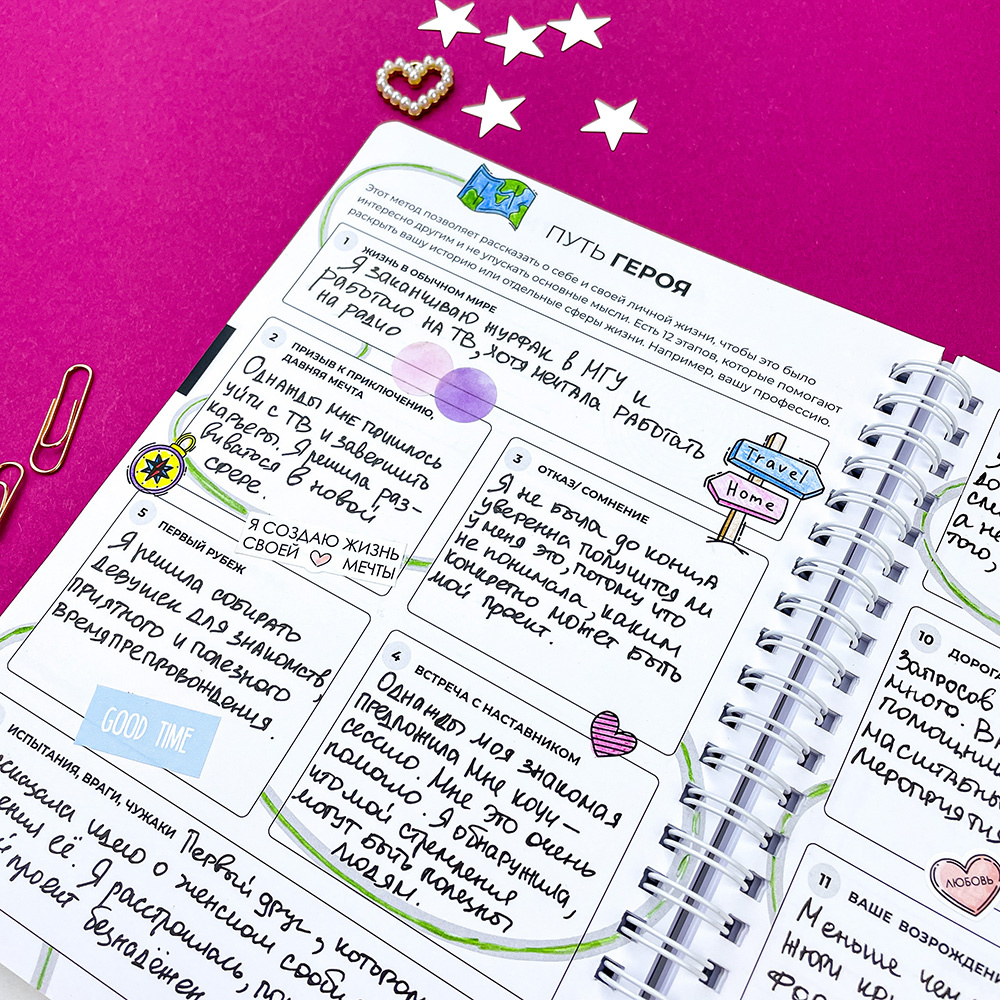 ПУТЬ ГЕРОЯ
Этот метод позволяет рассказать о себе и своей личной жизни, чтобы это было
интересно другим и не упускать основные мысли. Есть 12 этапов, которые помогают
раскрыть вашу историю или отдельные сферы жизни. Например, вашу профессию.
1 ЖИЗНЬ В ОБЫЧНОМ МИРЕ
Я заканчиваю журфак в МГУ и
работаю на ТВ, хотя мечтала работать
на радио
2 ПРИЗЫВ К ПРИКЛЮЧЕНИЮ,
ДАВНЯЯ МЕЧТА
Однажды мне пришлось
уйти с ТВ и завершить
карьеру. Я решила раз-
виваться в новой
сфере.
Travel
Home
3 ОТКАЗ/ СОМНЕНИЕ
Я не была до конца
уверенна получится ли
у меня это, потому что
не понимала, каким
конкретно может быть
мой проект.
Я СОЗДАЮ ЖИЗНЬ
СВОЕЙ МЕЧТЫ
4 ВСТРЕЧА С НАСТАВНИКОМ
Однажды моя знакомая
предложила мне коуч-
сессию. Мне это очень
помогло. Я обнаружила,
что мои стремления
могут быть полезны
людям.
5 ПЕРВЫЙ РУБЕЖ
Я решила собирать
девушек для знакомств,
приятного и полезного
времяпрепровождения.
GOOD TIME
ИСПЫТАНИЯ, ВРАГИ, ЧУЖАКИ Первый друг, котором
идею о женском сооб
её. Я расстроилась,
проект безнадёжен
а не
того,
10 ДОРОГА
Запросов
много. В
помощни
масштабны
мероприяти
11 ВАШЕ ВОЗРОЖДЕНИ
Меньше чем
ЛЮБОВЬ